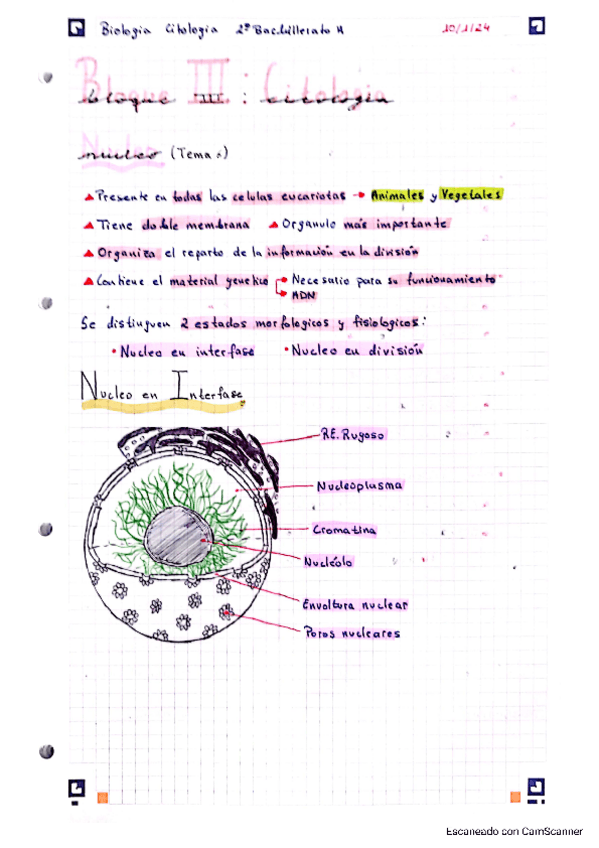 Biología Citología 2º Bachillerato A 10/1/24
Bloque III: Citología
Nucleo (Tema )
Presente en todas las celulas eucariotas → Animales y Vegetales
Tiene doble membrana Organulo más importante
Organiza el reparto de la información en la división
Contiene el material genetico Necesario para su funcionamiento
ADN
Se distinguen 2 estados morfologicos y fisiologicos:
• Nucleo en interfase • Nucleo en división
Nucleo en Interfase
RE. Rugoso
Nucleoplasma
Cromatina
Nucléolo
Envoltura nuclear
Poros nucleares
Escaneado con CamScanner